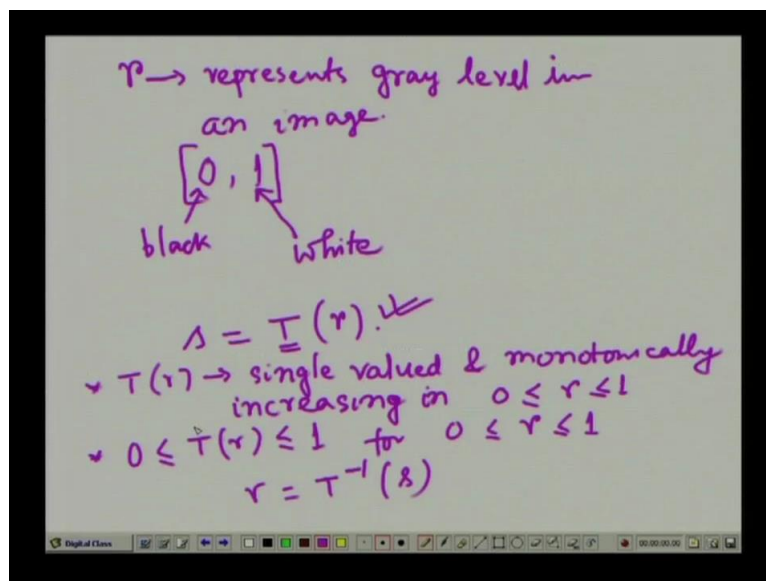 r → represents gray level in
an image.
[0, 1]
black white
s = T(r).
* T(r) → single valued & monotonically
increasing in 0 ≤ r ≤ 1
* 0 ≤ T(r) ≤ 1 for 0 ≤ r ≤ 1
r = T⁻¹(s)
Digital Class 00:00:00.00